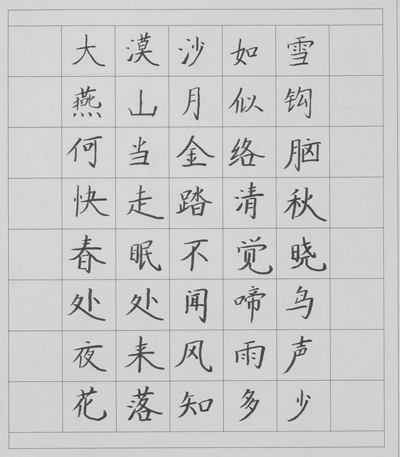 大漠沙如雪
燕山月似钩
何当金络脑
快走踏清秋
春眠不觉晓
处处闻啼鸟
夜来风雨声
花落知多少